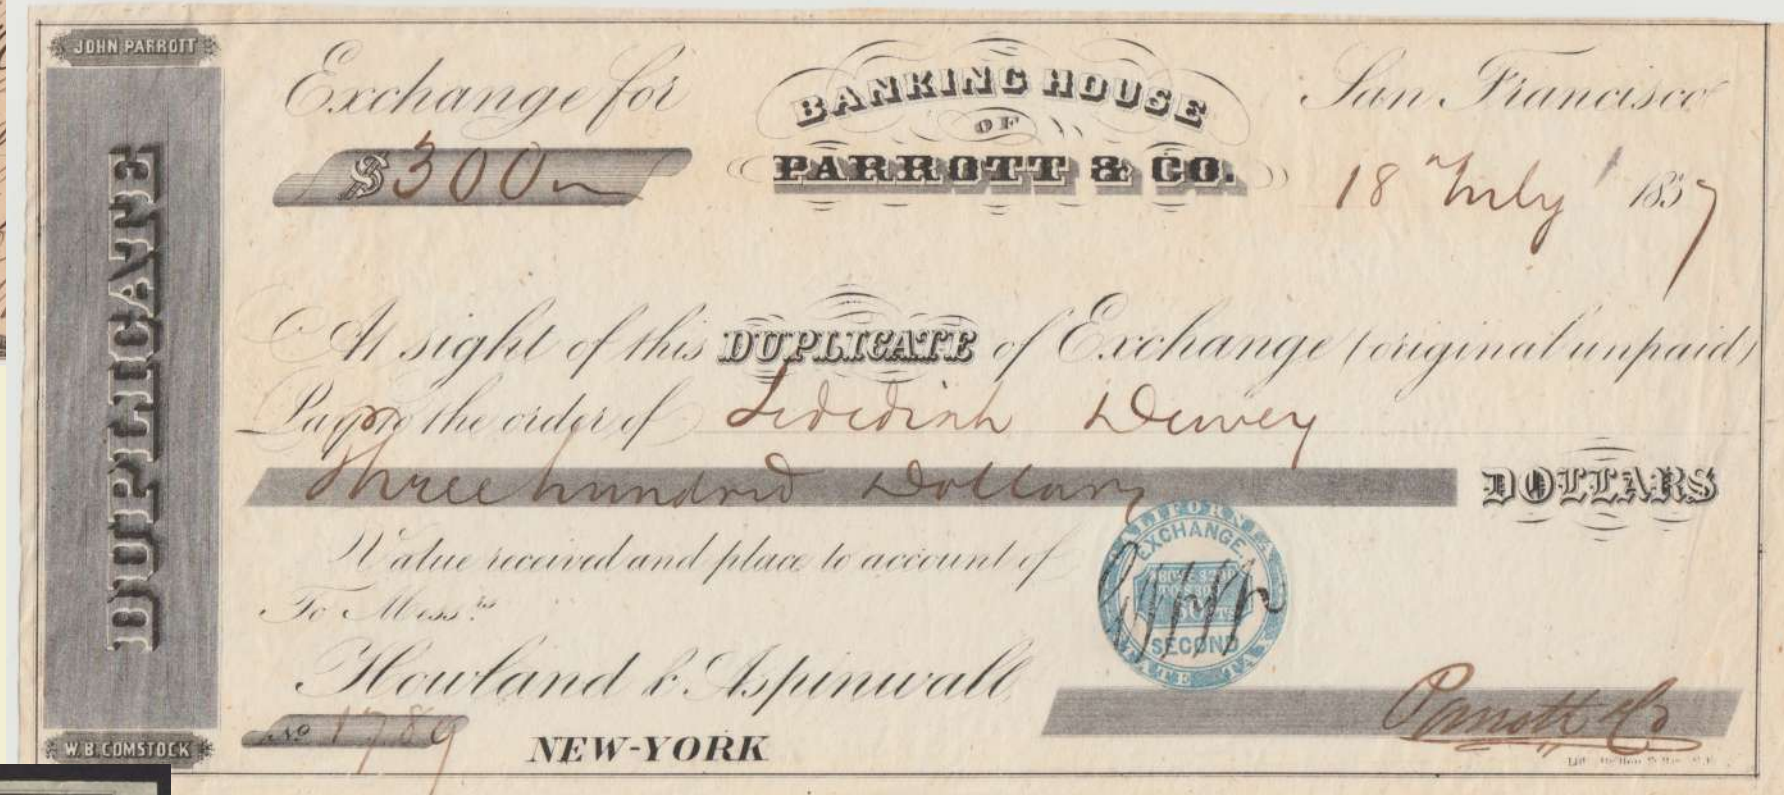 JOHN PARROTT
DUPLICATE
W.B. COMSTOCK
Exchange for
$300
BANKING HOUSE
OF
PARROTT & CO.
San Francisco
18 July 1857
At sight of this DUPLICATE of Exchange (original unpaid)
Pay to the order of Dewey
Three hundred Dollars DOLLARS
Value received and place to account of
To Messrs
Howland & Aspinwall
No 1789 NEW-YORK
CALIFORNIA
EXCHANGE.
SECOND
STATE TAX
Parrott & Co